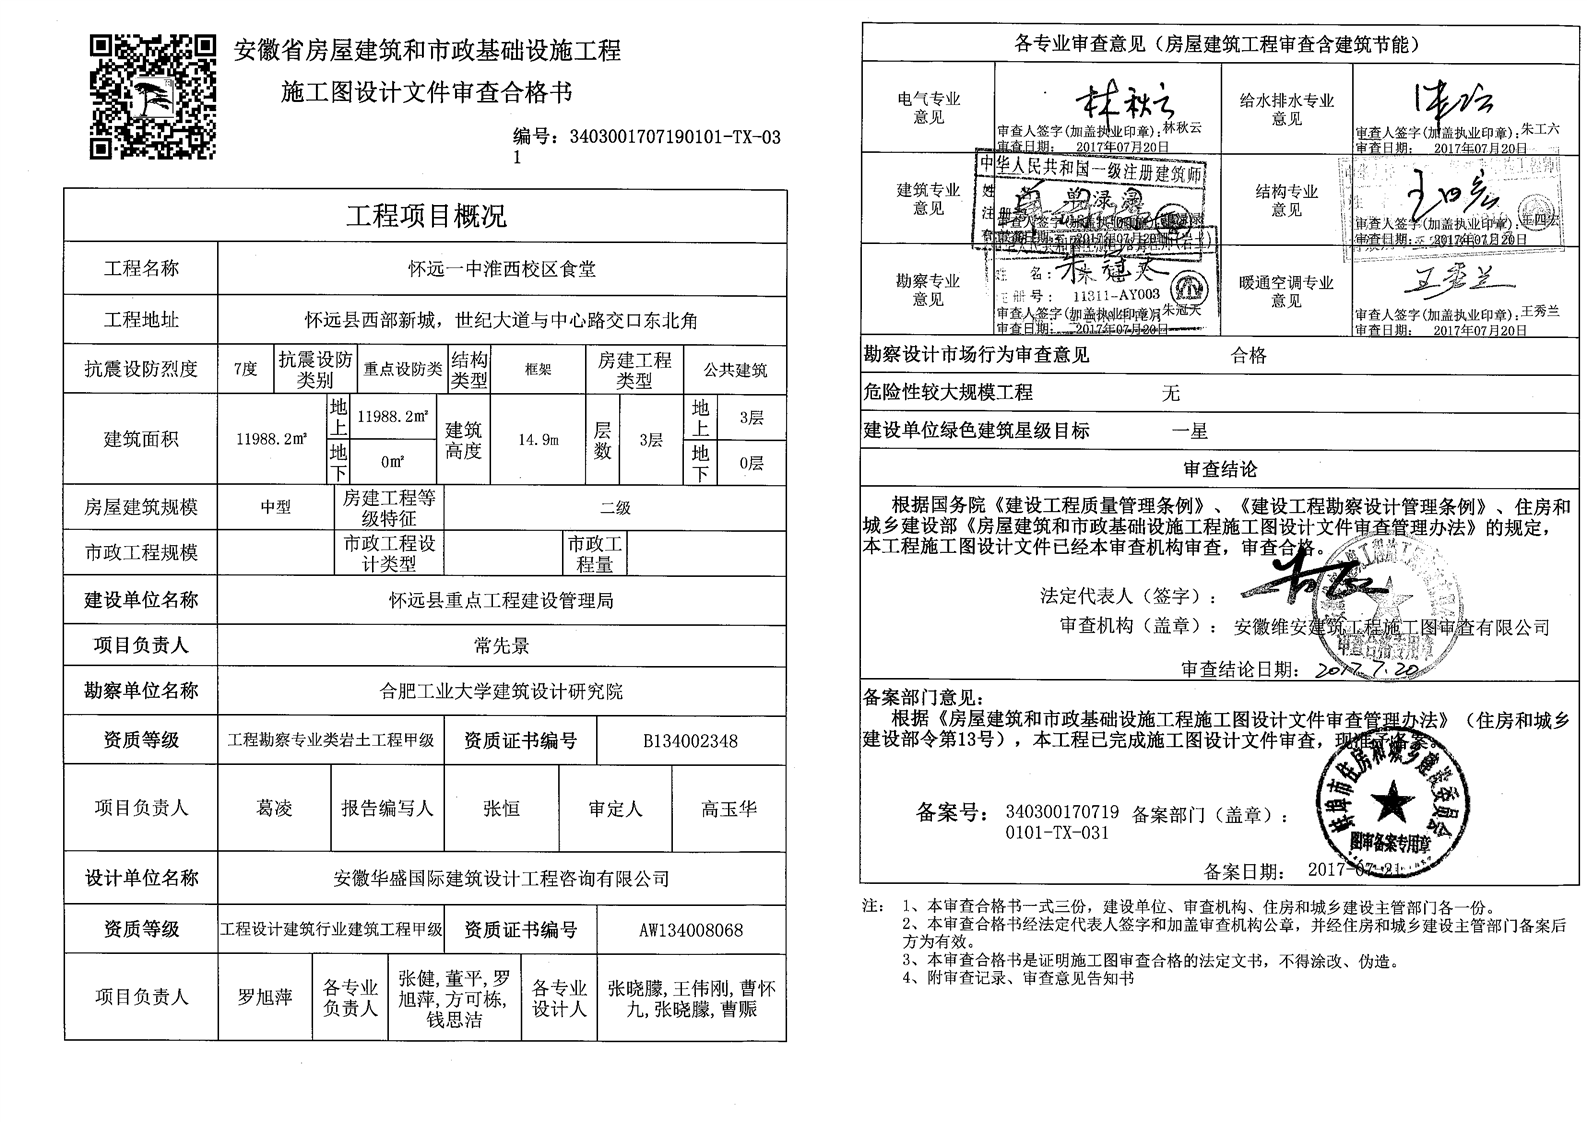 安徽省房屋建筑和市政基础设施工程
施工图设计文件审查合格书
编号：3403001707190101-TX-03
1
工程项目概况
工程名称 怀远一中淮西校区食堂
工程地址 怀远县西部新城，世纪大道与中心路交口东北角
抗震设防烈度 7度 抗震设防类别 重点设防类 结构类型 框架 房建工程类型 公共建筑
建筑面积 11988.2㎡ 地上 11988.2㎡ 地下 0㎡ 建筑高度 14.9m 层数 3层 地上 3层 地下 0层
房屋建筑规模 中型 房建工程等级特征 二级
市政工程规模 市政工程设计类型 市政工程量
建设单位名称 怀远县重点工程建设管理局
项目负责人 常先景
勘察单位名称 合肥工业大学建筑设计研究院
资质等级 工程勘察专业类岩土工程甲级 资质证书编号 B134002348
项目负责人 葛凌 报告编写人 张恒 审定人 高玉华
设计单位名称 安徽华盛国际建筑设计工程咨询有限公司
资质等级 工程设计建筑行业建筑工程甲级 资质证书编号 AW134008068
项目负责人 罗旭萍 各专业负责人 张健,董平,罗旭萍,方可栋,钱思洁 各专业设计人 张晓朦,王伟刚,曹怀九,张晓朦,曹赈
各专业审查意见（房屋建筑工程审查含建筑节能）
电气专业意见 林秋云 审查人签字(加盖执业印章)：林秋云
审查日期： 2017年07月20日
给水排水专业意见 审查人签字(加盖执业印章)：朱工六
审查日期： 2017年07月20日
建筑专业意见 中华人民共和国一级注册建筑师
审查人签字(加盖执业印章)
审查日期： 2017年07月20日
结构专业意见 王四宏 审查人签字(加盖执业印章)：王四宏
审查日期： 2017年07月20日
勘察专业意见 姓 名：朱冠天
注册号：11311-AY003
审查人签字(加盖执业印章)：朱冠天
审查日期： 2017年07月20日
暖通空调专业意见 王秀兰 审查人签字(加盖执业印章)：王秀兰
审查日期： 2017年07月20日
勘察设计市场行为审查意见 合格
危险性较大规模工程 无
建设单位绿色建筑星级目标 一星
审查结论
根据国务院《建设工程质量管理条例》、《建设工程勘察设计管理条例》、住房和
城乡建设部《房屋建筑和市政基础设施工程施工图设计文件审查管理办法》的规定，
本工程施工图设计文件已经本审查机构审查，审查合格。
法定代表人（签字）：
审查机构（盖章）： 安徽维安建筑工程施工图审查有限公司
审查合格专用章
审查结论日期： 2017.7.20
备案部门意见：
根据《房屋建筑和市政基础设施工程施工图设计文件审查管理办法》（住房和城乡
建设部令第13号），本工程已完成施工图设计文件审查，现准予备案。
蚌埠市住房和城乡建设委员会
图审备案专用章
备案号： 340300170719 备案部门（盖章）：
0101-TX-031
备案日期： 2017-07-21
注： 1、本审查合格书一式三份，建设单位、审查机构、住房和城乡建设主管部门各一份。
2、本审查合格书经法定代表人签字和加盖审查机构公章，并经住房和城乡建设主管部门备案后
方为有效。
3、本审查合格书是证明施工图审查合格的法定文书，不得涂改、伪造。
4、附审查记录、审查意见告知书